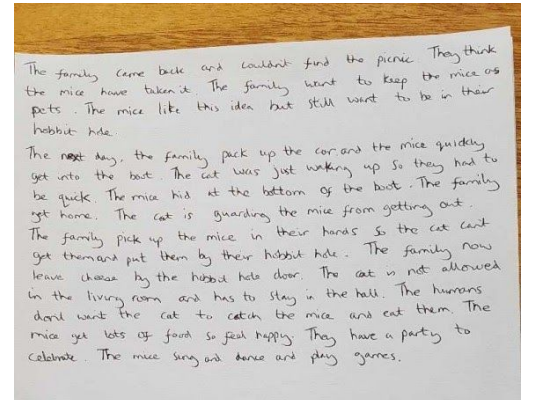 The family came back and couldn't find the picnic. They think
the mice have taken it. The family want to keep the mice as
pets. The mice like this idea but still want to be in their
hobbit hole.
The next day, the family pack up the car and the mice quickly
get into the boot. The cat was just waking up so they had to
be quick. The mice hid at the bottom of the boot. The family
get home. The cat is guarding the mice from getting out.
The family pick up the mice in their hands so the cat can't
get them and put them by their hobbit hole. The family now
leave cheese by the hobbit hole door. The cat is not allowed
in the living room and has to stay in the hall. The humans
don't want the cat to catch the mice and eat them. The
mice get lots of food so feel happy. They have a party to
celebrate. The mice sing and dance and play games.